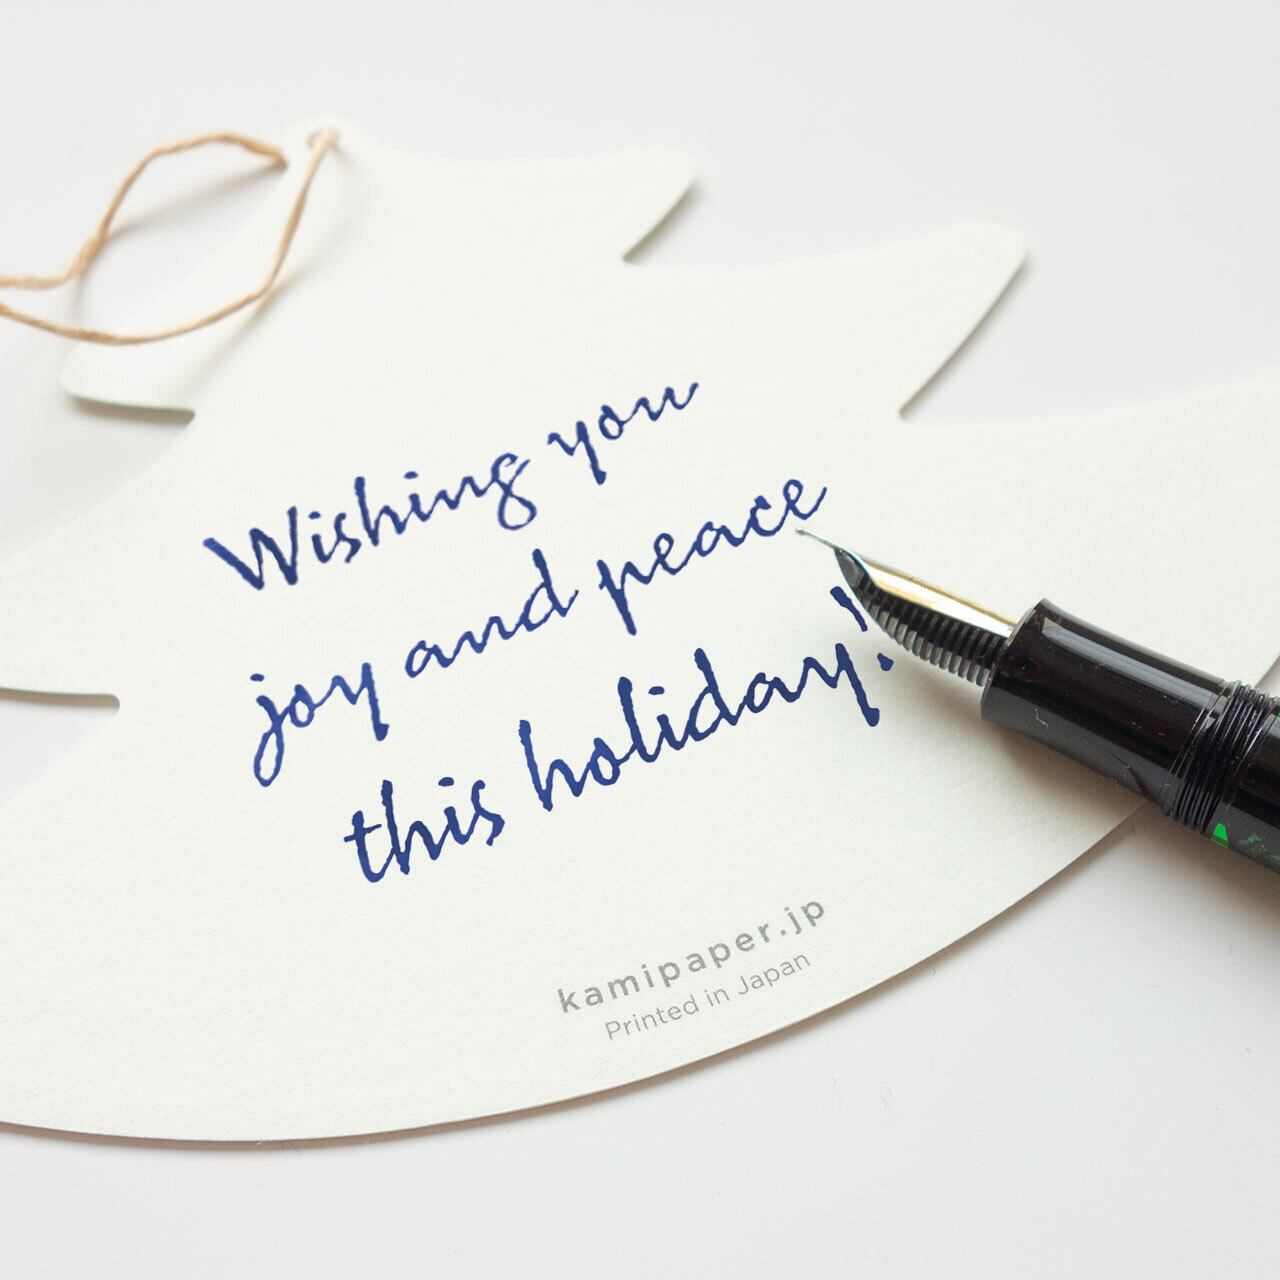 Wishing you
joy and peace
this holiday!
kamipaper.jp
Printed in Japan